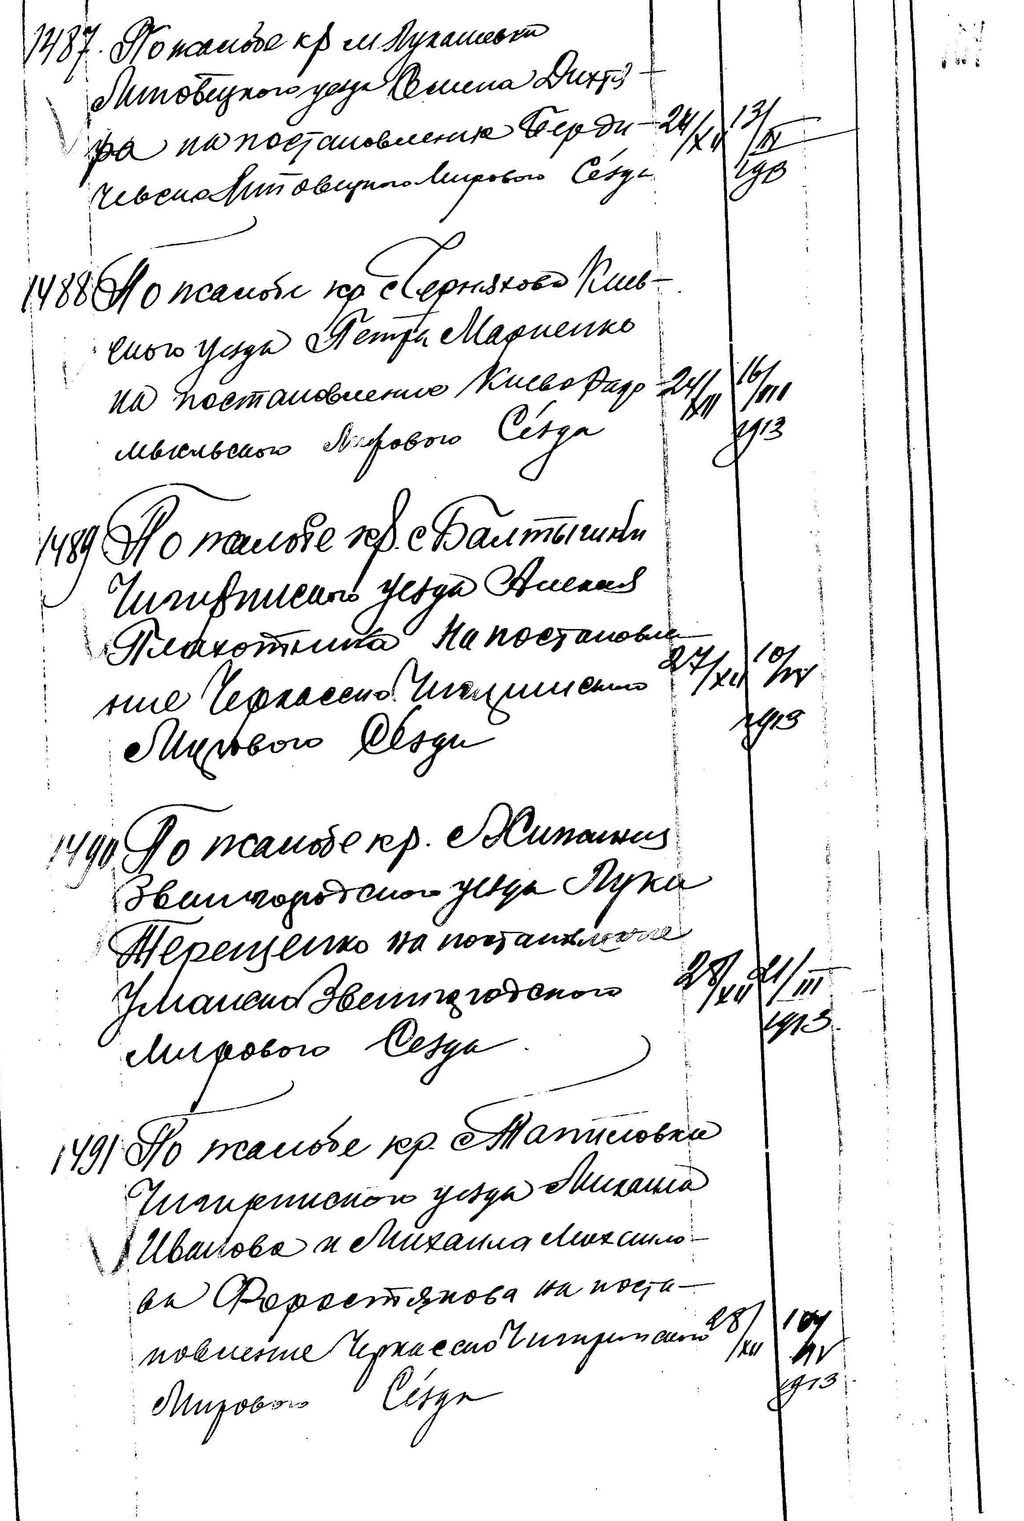 1487. По жалобе кр м. Лукашевки
Липовецкого уезда Семена Дихтя-
ра на постановление Берди- 24/XII 13/IV
чевско Липовецкого Мирового Съезда 1913
1488 По жалобе кр с Черняхова Киев-
ского уезда Петра Мариенко
на постановление Киево Радо- 24/XII 16/III
мысльского Мирового Съезда 1913
1489 По жалобе кр. с Балтышки
Чигиринского уезда Алексея
Плахотника на постановле-
ние Черкасско Чигиринского 27/XII 10/IV
Мирового Съезда 1913
1490 По жалобе кр. с
Звенигородского уезда Луки
Терещенко на постановление
Уманско Звенигородского 28/XII 21/III
Мирового Съезда 1913
1491 По жалобе кр. с Топиловки
Чигиринского уезда Михаила
Иванова и Михаила Михайло-
ва Форостянова на поста-
новление Черкасско Чигиринского 28/XII IV
Мирового Съезда 1913